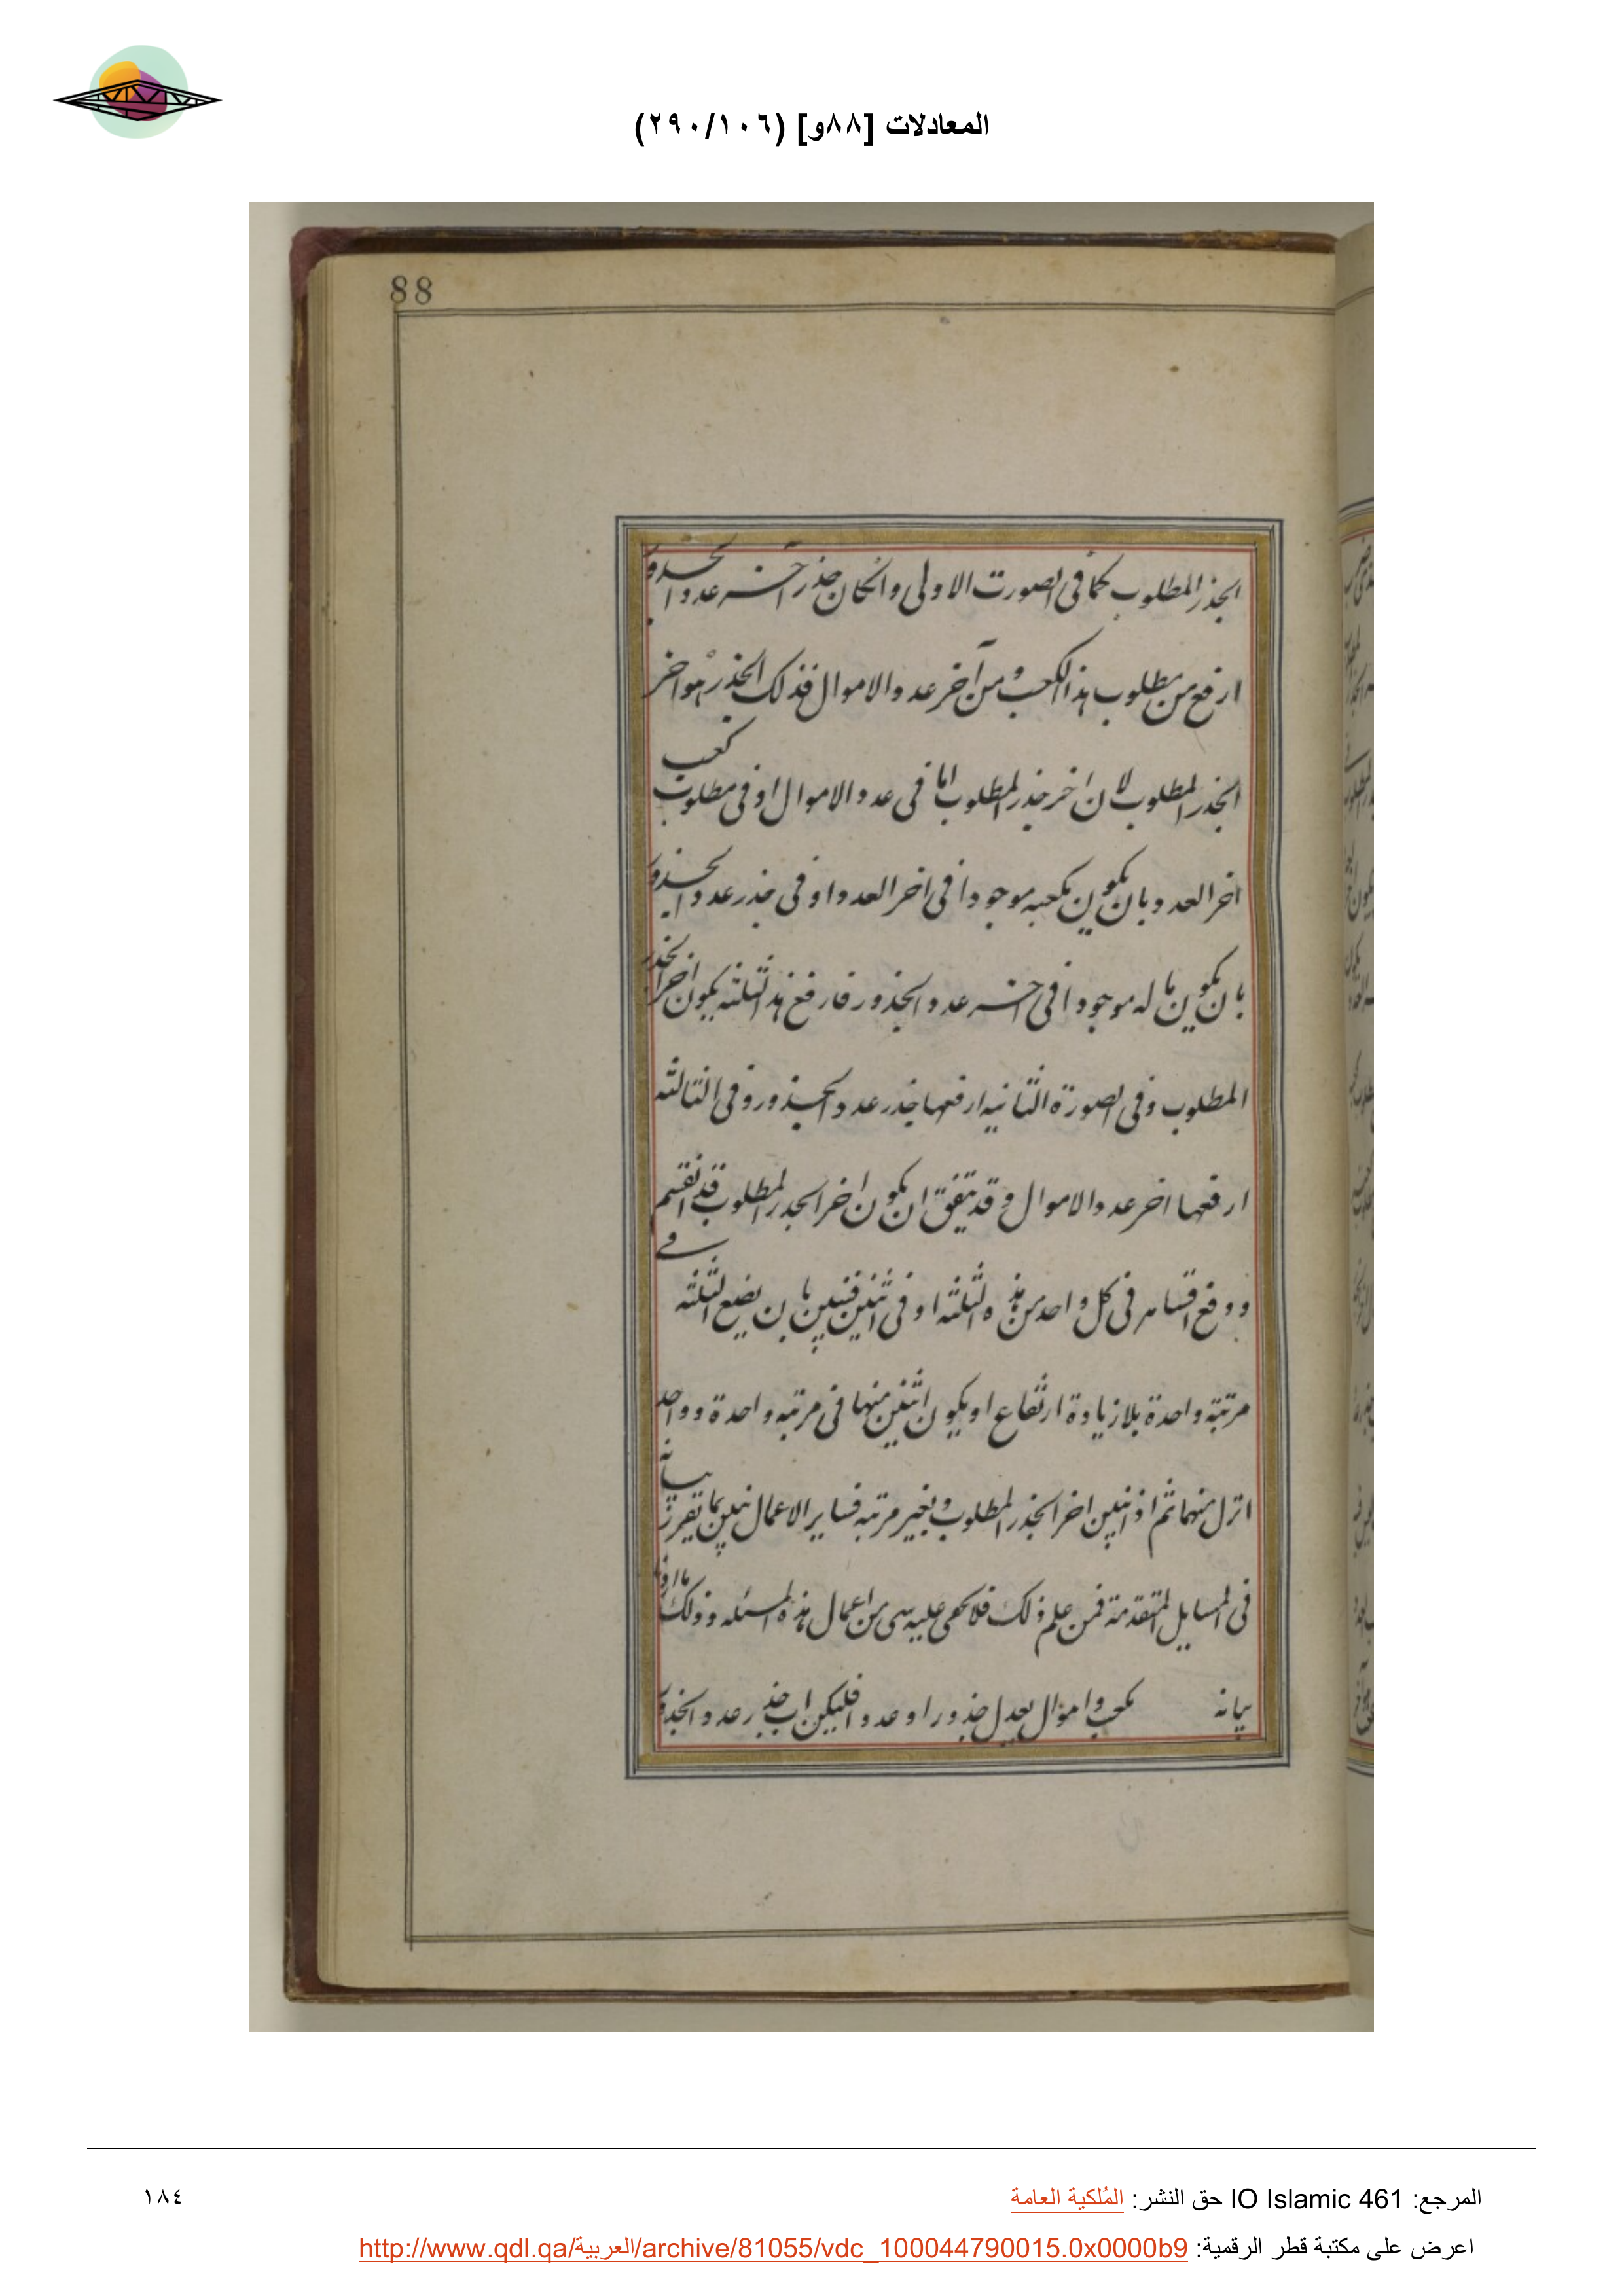 المعادلات [٨٨و] (٢٩٠/١٠٦)
88
الجذر المطلوب كما فى الصورت الاولى وانكان جذر آخر عدد الجذور
ارفع من مطلوب هذا الكعب ومن آخر عدد الاموال فذلك الجذر هو اخر
الجذر المطلوب لان اخر جذر المطلوب اما فى عدد الاموال او فى مطلوب كعب
اخر العدد بان يكون مكعبه موجودا فى اخر العدد او فى جذر عدد الجذور
بان يكون ماله موجودا فى اخر عدد الجذور فارفع هذه الثلثه يكون اخر الجذر
المطلوب وفى الصورة الثانيه ارفعها جذر عدد الجذور وفى الثالثه
ارفعها اخر عدد الاموال وقد يتفق ان يكون اخر الجدر المطلوب قد انقسم
ووقع اقسامه فى كل واحد من هذه الثلثه او فى اثنين فتبين بان يضع الثلثه فى
مرتبة واحدة بلا زيادة ارتفاع او يكون اثنين منها فى مرتبه واحدة وواحد
انزل منهما ثم اذا تبين اخر الجذر المطلوب وبغير مرتبه فساير الاعمال تبين بما تقرر بيانه
فى المسايل المتقدمة فمن علم ذلك فلا يخفى عليه شى من اعمال هذه المسئله وذلك ما اردنا
بيانه مكعب واموال يعدل جذورا وعددا فليكن اب جذر عدد الجذور
المرجع: IO Islamic 461 حق النشر: المُلكية العامة
١٨٤
اعرض على مكتبة قطر الرقمية: http://www.qdl.qa/العربية/archive/81055/vdc_100044790015.0x0000b9